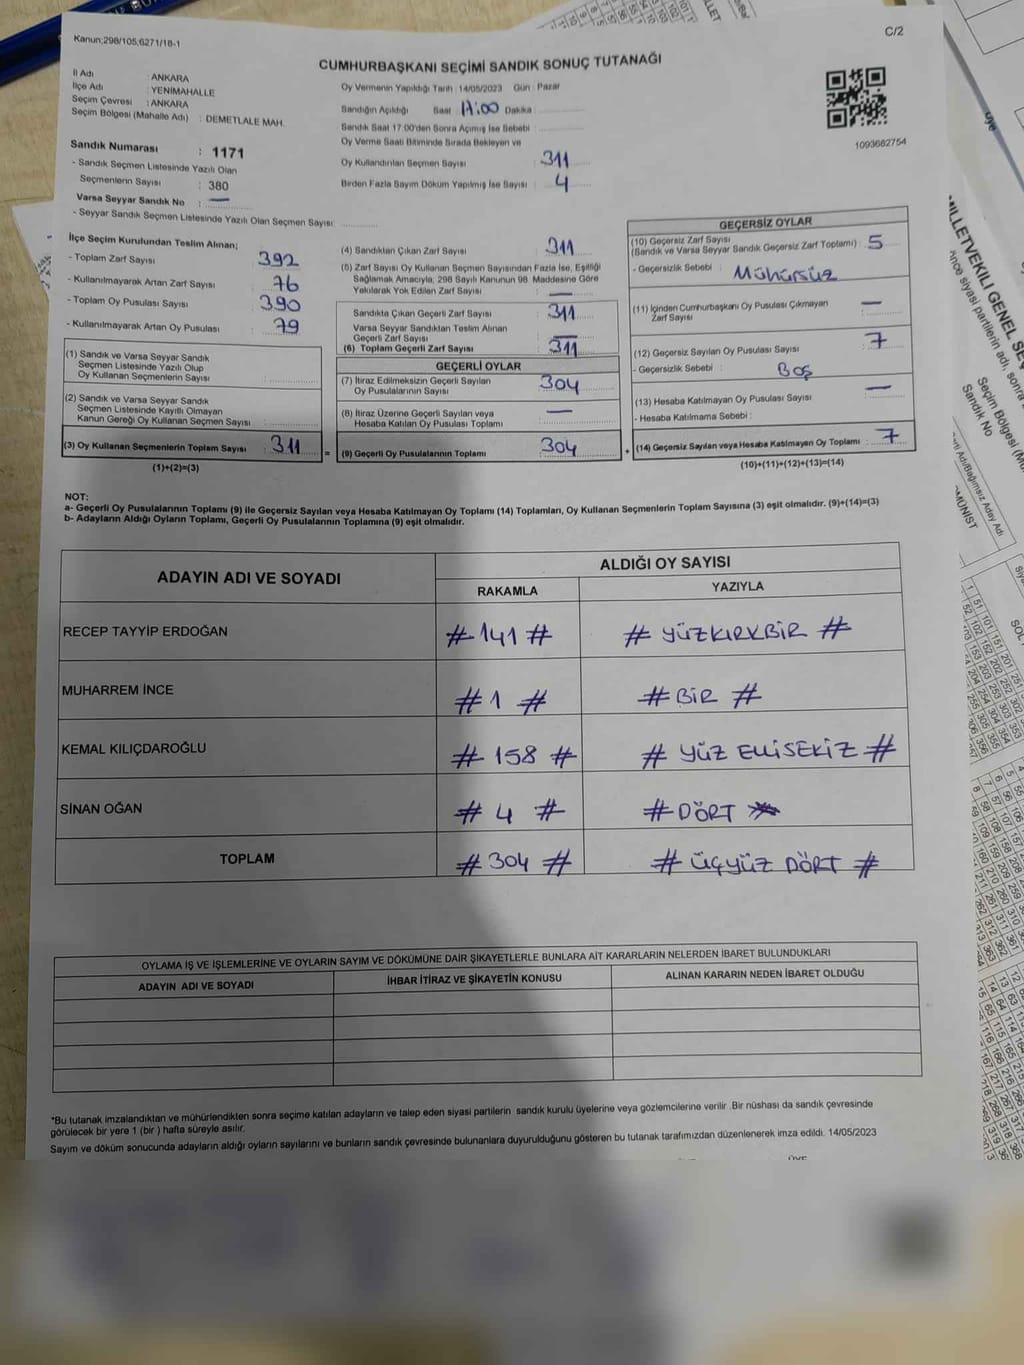 Kanun;298/105,6271/18-1
C/2
CUMHURBAŞKANI SEÇİMİ SANDIK SONUÇ TUTANAĞI
İl Adı : ANKARA
İlçe Adı : YENİMAHALLE
Seçim Çevresi : ANKARA
Seçim Bölgesi (Mahalle Adı) : DEMETLALE MAH.
Sandık Numarası : 1171
- Sandık Seçmen Listesinde Yazılı Olan
Seçmenlerin Sayısı : 380
Varsa Seyyar Sandık No : —
- Seyyar Sandık Seçmen Listesinde Yazılı Olan Seçmen Sayısı:
Oy Vermenin Yapıldığı Tarih :14/05/2023 Gün : Pazar
Sandığın Açıldığı Saat 17:00 Dakika
Sandık Saat 17:00'den Sonra Açımış İse Sebebi :
Oy Verme Saati Bitiminde Sırada Bekleyen ve
Oy Kullandırılan Seçmen Sayısı 311
Birden Fazla Sayım Döküm Yapılmış İse Sayısı 4
1093682754
İlçe Seçim Kurulundan Teslim Alınan;
- Toplam Zarf Sayısı 392
- Kullanılmayarak Artan Zarf Sayısı 76
- Toplam Oy Pusulası Sayısı 390
- Kullanılmayarak Artan Oy Pusulası 79
(1) Sandık ve Varsa Seyyar Sandık
Seçmen Listesinde Yazılı Olup
Oy Kullanan Seçmenlerin Sayısı :
(2) Sandık ve Varsa Seyyar Sandık
Seçmen Listesinde Kayıtlı Olmayan
Kanun Gereği Oy Kullanan Seçmen Sayısı :
(3) Oy Kullanan Seçmenlerin Toplam Sayısı : 311 =
(1)+(2)=(3)
(4) Sandıktan Çıkan Zarf Sayısı 311
(5) Zarf Sayısı Oy Kullanan Seçmen Sayısından Fazla İse, Eşitliği
Sağlamak Amacıyla, 298 Sayılı Kanunun 98. Maddesine Göre
Yakılarak Yok Edilen Zarf Sayısı —
Sandıkta Çıkan Geçerli Zarf Sayısı 311
Varsa Seyyar Sandıktan Teslim Alınan
Geçerli Zarf Sayısı —
(6) Toplam Geçerli Zarf Sayısı 311
GEÇERLİ OYLAR
(7) İtiraz Edilmeksizin Geçerli Sayılan
Oy Pusulalarının Sayısı 304
(8) İtiraz Üzerine Geçerli Sayılan veya
Hesaba Katılan Oy Pusulası Toplamı —
(9) Geçerli Oy Pusulalarının Toplamı 304 +
GEÇERSİZ OYLAR
(10) Geçersiz Zarf Sayısı
(Sandık ve Varsa Seyyar Sandık Geçersiz Zarf Toplamı) : 5
- Geçersizlik Sebebi : Mühürsüz
(11) İçinden Cumhurbaşkanı Oy Pusulası Çıkmayan
Zarf Sayısı —
(12) Geçersiz Sayılan Oy Pusulası Sayısı : 7
- Geçersizlik Sebebi : Boş
(13) Hesaba Katılmayan Oy Pusulası Sayısı : —
- Hesaba Katılmama Sebebi :
(14) Geçersiz Sayılan veya Hesaba Katılmayan Oy Toplamı : 7
(10)+(11)+(12)+(13)=(14)
NOT:
a- Geçerli Oy Pusulalarının Toplamı (9) ile Geçersiz Sayılan veya Hesaba Katılmayan Oy Toplamı (14) Toplamları, Oy Kullanan Seçmenlerin Toplam Sayısına (3) eşit olmalıdır. (9)+(14)=(3)
b- Adayların Aldığı Oyların Toplamı, Geçerli Oy Pusulalarının Toplamına (9) eşit olmalıdır.
ADAYIN ADI VE SOYADI
ALDIĞI OY SAYISI
RAKAMLA YAZIYLA
RECEP TAYYİP ERDOĞAN # 141 # # YÜZKIRKBİR #
MUHARREM İNCE # 1 # # BİR #
KEMAL KILIÇDAROĞLU # 158 # # YÜZ ELLİSEKİZ #
SİNAN OĞAN # 4 # # DÖRT #
TOPLAM # 304 # # ÜÇYÜZ DÖRT #
OYLAMA İŞ VE İŞLEMLERİNE VE OYLARIN SAYIM VE DÖKÜMÜNE DAİR ŞİKAYETLERLE BUNLARA AİT KARARLARIN NELERDEN İBARET BULUNDUKLARI
ADAYIN ADI VE SOYADI İHBAR İTİRAZ VE ŞİKAYETİN KONUSU ALINAN KARARIN NEDEN İBARET OLDUĞU
*Bu tutanak imzalandıktan ve mühürlendikten sonra seçime katılan adayların ve talep eden siyasi partilerin sandık kurulu üyelerine veya gözlemcilerine verilir .Bir nüshası da sandık çevresinde
görülecek bir yere 1 (bir ) hafta süreyle asılır.
Sayım ve döküm sonucunda adayların aldığı oyların sayılarını ve bunların sandık çevresinde bulunanlara duyurulduğunu gösteren bu tutanak tarafımızdan düzenlenerek imza edildi. 14/05/2023
MİLLETVEKİLİ GENEL SE
Seçim Bölgesi (M
Sandık No